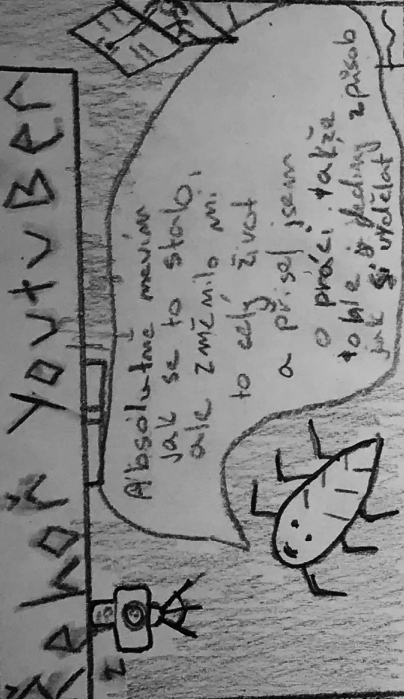 Řehoř YouTuBer
Absolutně nevím
jak se to stalo,
ale změnilo mi
to celý život
a přišel jsem
o práci takže
tohle je jediný způsob
jak si vydělat